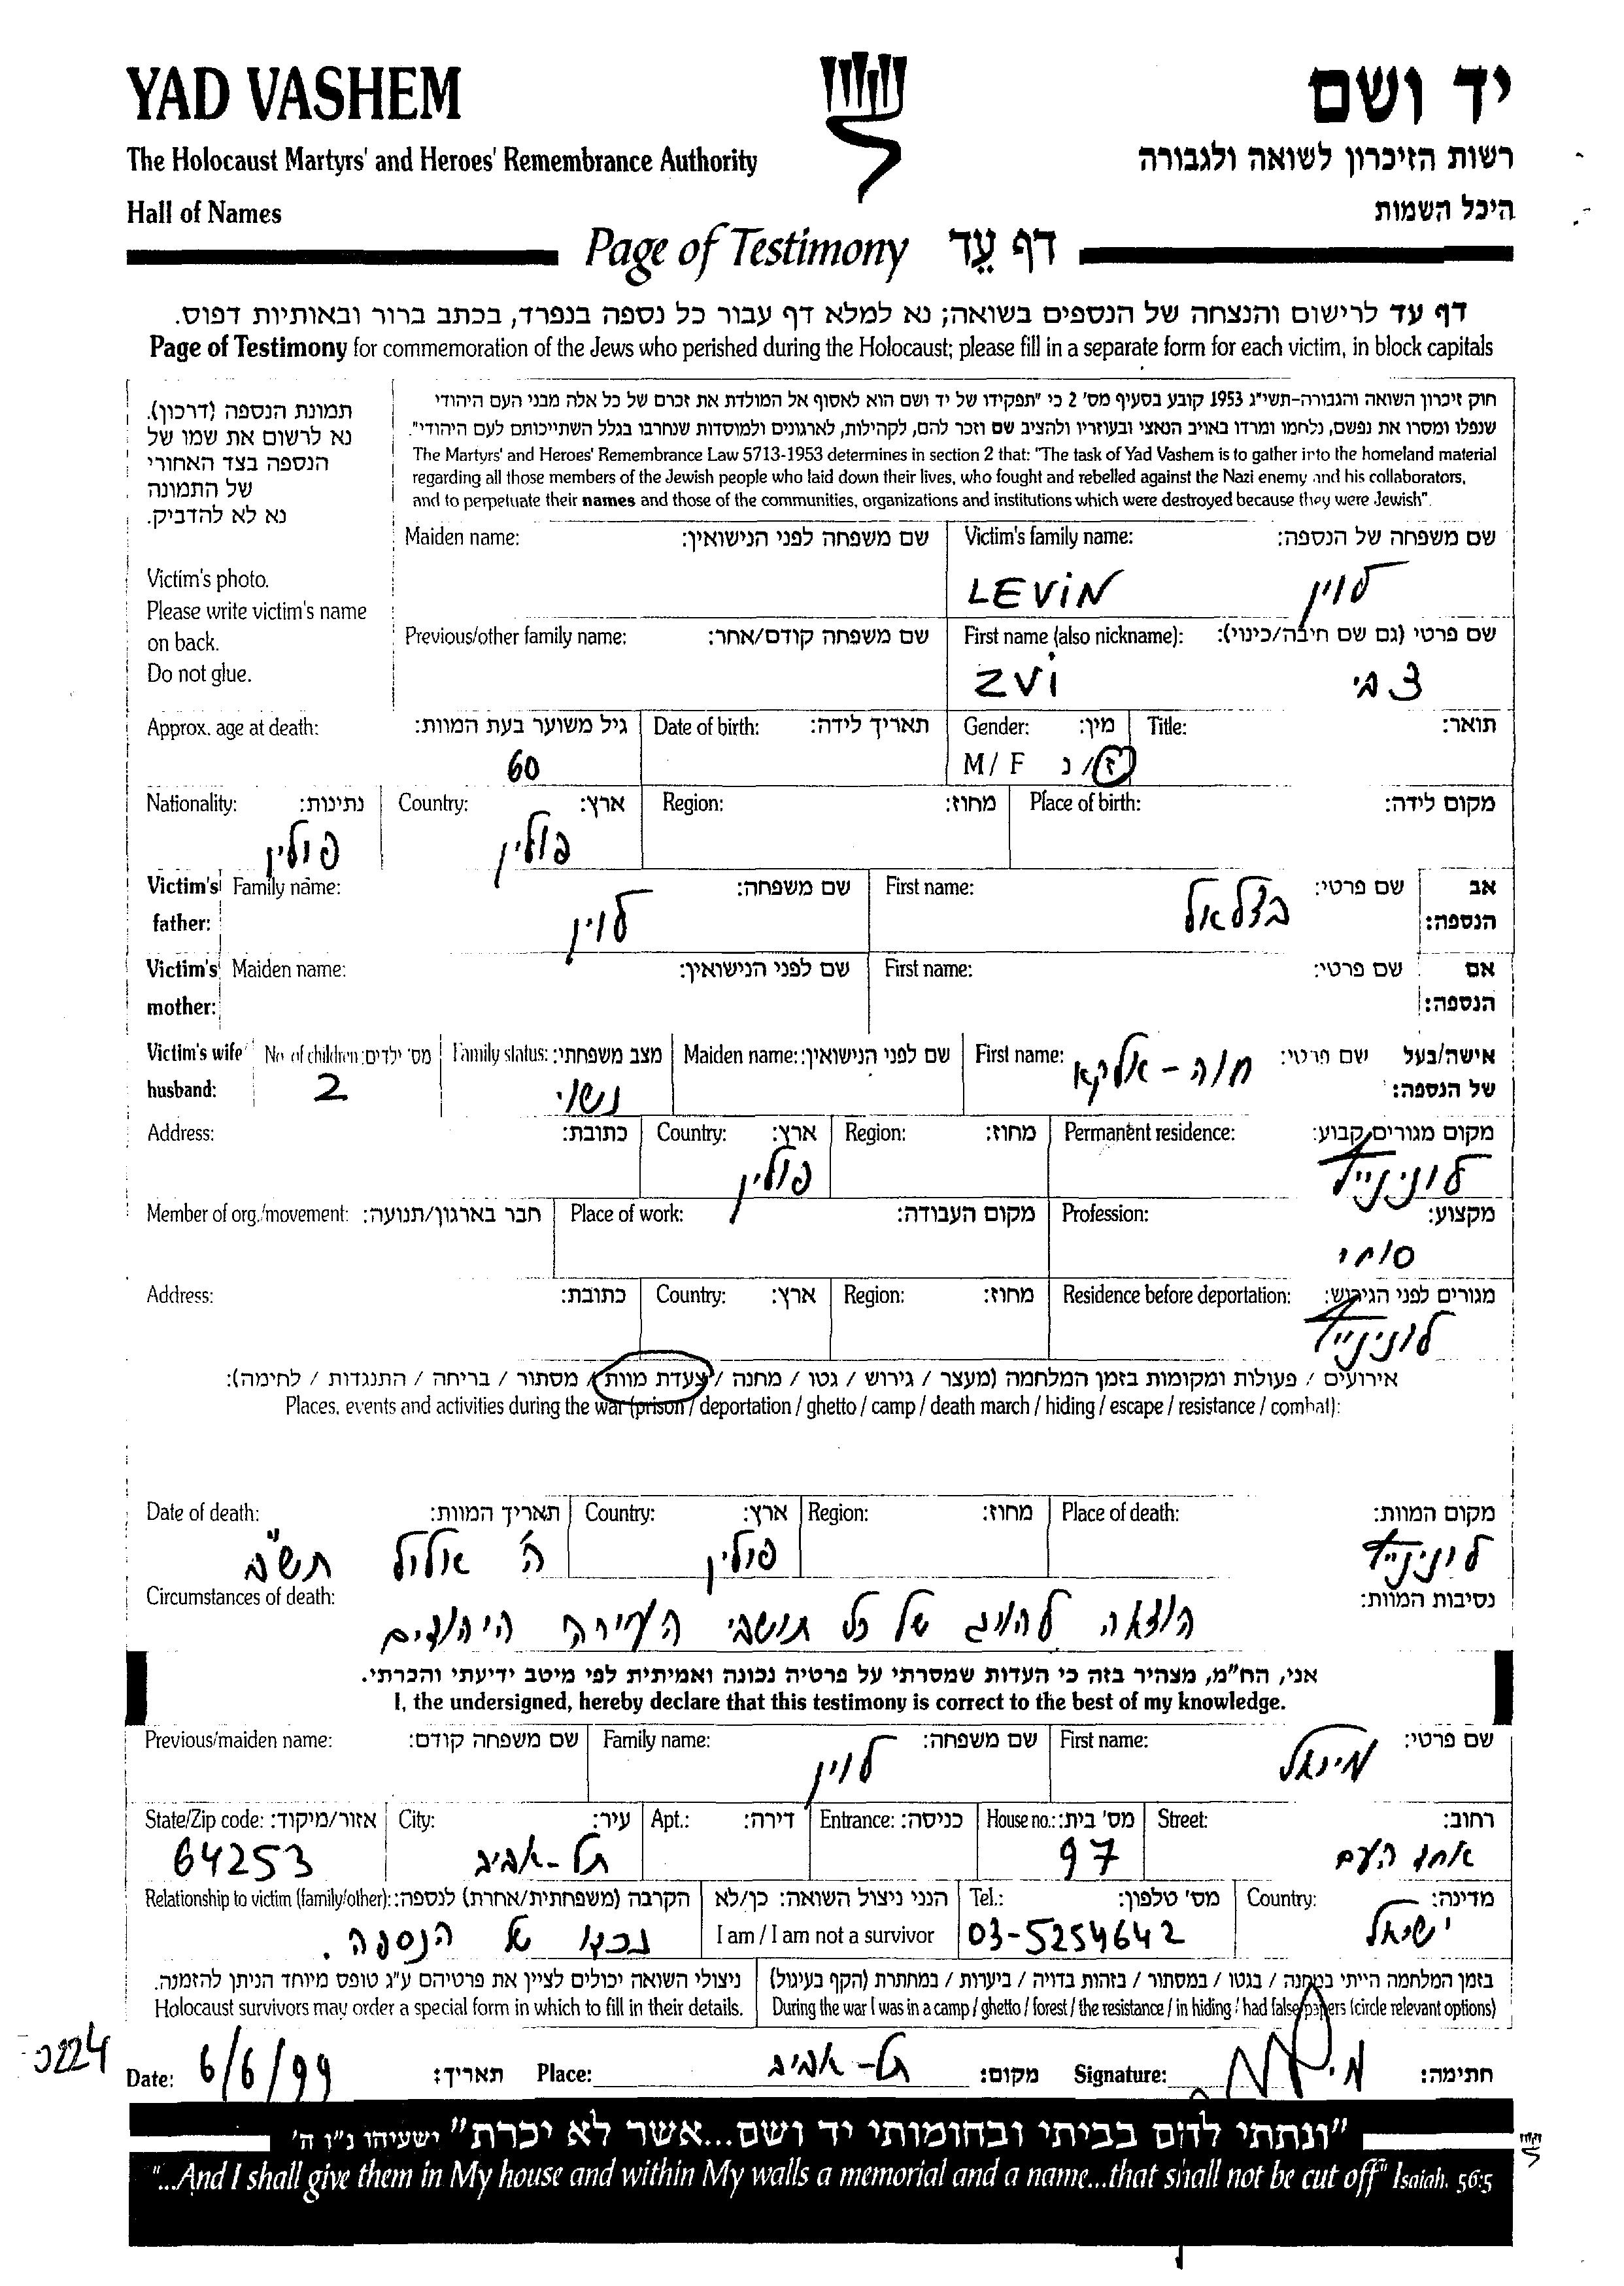 YAD VASHEM
יד ושם
The Holocaust Martyrs' and Heroes' Remembrance Authority
רשות הזיכרון לשואה ולגבורה
Hall of Names
היכל השמות
Page of Testimony דף עֵד
דף עד לרישום והנצחה של הנספים בשואה; נא למלא דף עבור כל נספה בנפרד, בכתב ברור ובאותיות דפוס.
Page of Testimony for commemoration of the Jews who perished during the Holocaust; please fill in a separate form for each victim, in block capitals
תמונת הנספה (דרכון).
נא לרשום את שמו של
הנספה בצד האחורי
של התמונה
נא לא להדביק.
Victim's photo.
Please write victim's name
on back.
Do not glue.
חוק זיכרון השואה והגבורה-תשי"ג 1953 קובע בסעיף מס' 2 כי "תפקידו של יד ושם הוא לאסוף אל המולדת את זכרם של כל אלה מבני העם היהודי
שנפלו ומסרו את נפשם, נלחמו ומרדו באויב הנאצי ובעוזריו ולהציב שם וזכר להם, לקהילות, לארגונים ולמוסדות שנחרבו בגלל השתייכותם לעם היהודי".
The Martyrs' and Heroes' Remembrance Law 5713-1953 determines in section 2 that: "The task of Yad Vashem is to gather into the homeland material
regarding all those members of the Jewish people who laid down their lives, who fought and rebelled against the Nazi enemy and his collaborators,
and to perpetuate their names and those of the communities, organizations and institutions which were destroyed because they were Jewish".
Maiden name: שם משפחה לפני הנישואין: Victim's family name: שם משפחה של הנספה:
LEVIN לוין
Previous/other family name: שם משפחה קודם/אחר: First name (also nickname): שם פרטי (גם שם חיבה/כינוי):
ZVI צבי
Approx. age at death: גיל משוער בעת המוות: Date of birth: תאריך לידה: Gender: מין: Title: תואר:
60 M / F ז/נ
Nationality: נתינות: Country: ארץ: Region: מחוז: Place of birth: מקום לידה:
פולין פולין
Victim's father: Family name: שם משפחה: First name: שם פרטי: אב הנספה:
לוין בצלאל
Victim's mother: Maiden name: שם לפני הנישואין: First name: שם פרטי: אם הנספה:
Victim's wife/ husband: No. of children: מס' ילדים: Family status: מצב משפחתי: Maiden name: שם לפני הנישואין: First name: שם פרטי: אישה/בעל של הנספה:
2 נשוי חוה - אלקא
Address: כתובת: Country: ארץ: Region: מחוז: Permanent residence: מקום מגורים קבוע:
פולין לונינייץ
Member of org./movement: חבר בארגון/תנועה: Place of work: מקום העבודה: Profession: מקצוע:
סוחי
Address: כתובת: Country: ארץ: Region: מחוז: Residence before deportation: מגורים לפני הגירוש:
לונינייץ
אירועים / פעולות ומקומות בזמן המלחמה (מעצר / גירוש / גטו / מחנה / צעדת מוות / מסתור / בריחה / התנגדות / לחימה):
Places, events and activities during the war (prison / deportation / ghetto / camp / death march / hiding / escape / resistance / combat):
Date of death: תאריך המוות: Country: ארץ: Region: מחוז: Place of death: מקום המוות:
ה' אלול תש"ב פולין לונינייץ
Circumstances of death: נסיבות המוות:
הוצאה להורג של כל תושבי העיירה היהודים
אני, הח"מ, מצהיר בזה כי העדות שמסרתי על פרטיה נכונה ואמיתית לפי מיטב ידיעתי והכרתי.
I, the undersigned, hereby declare that this testimony is correct to the best of my knowledge.
Previous/maiden name: שם משפחה קודם: Family name: שם משפחה: First name: שם פרטי:
לוין מיכאל
State/Zip code: אזור/מיקוד: City: עיר: Apt.: דירה: Entrance: כניסה: House no.: מס' בית: Street: רחוב:
64253 תל-אביב 97 אחד העם
Relationship to victim (family/other): הקרבה (משפחתית/אחרת) לנספה: הנני ניצול השואה: כן/לא Tel.: מס' טלפון: Country: מדינה:
נכדו של הנספה. I am / I am not a survivor 03-5254642 ישראל
ניצולי השואה יכולים לציין את פרטיהם ע"ג טופס מיוחד הניתן להזמנה. בזמן המלחמה הייתי במחנה / בגטו / במסתור / בזהות בדויה / ביערות / במחתרת (הקף בעיגול)
Holocaust survivors may order a special form in which to fill in their details. During the war I was in a camp / ghetto / forest / the resistance / in hiding / had false papers (circle relevant options)
Date: 6/6/99 תאריך: Place: תל-אביב מקום: Signature: חתימה:
"ונתתי להם בביתי ובחומותי יד ושם...אשר לא יכרת" ישעיהו נ"ו ה'
"...And I shall give them in My house and within My walls a memorial and a name...that shall not be cut off" Isaiah. 56:5